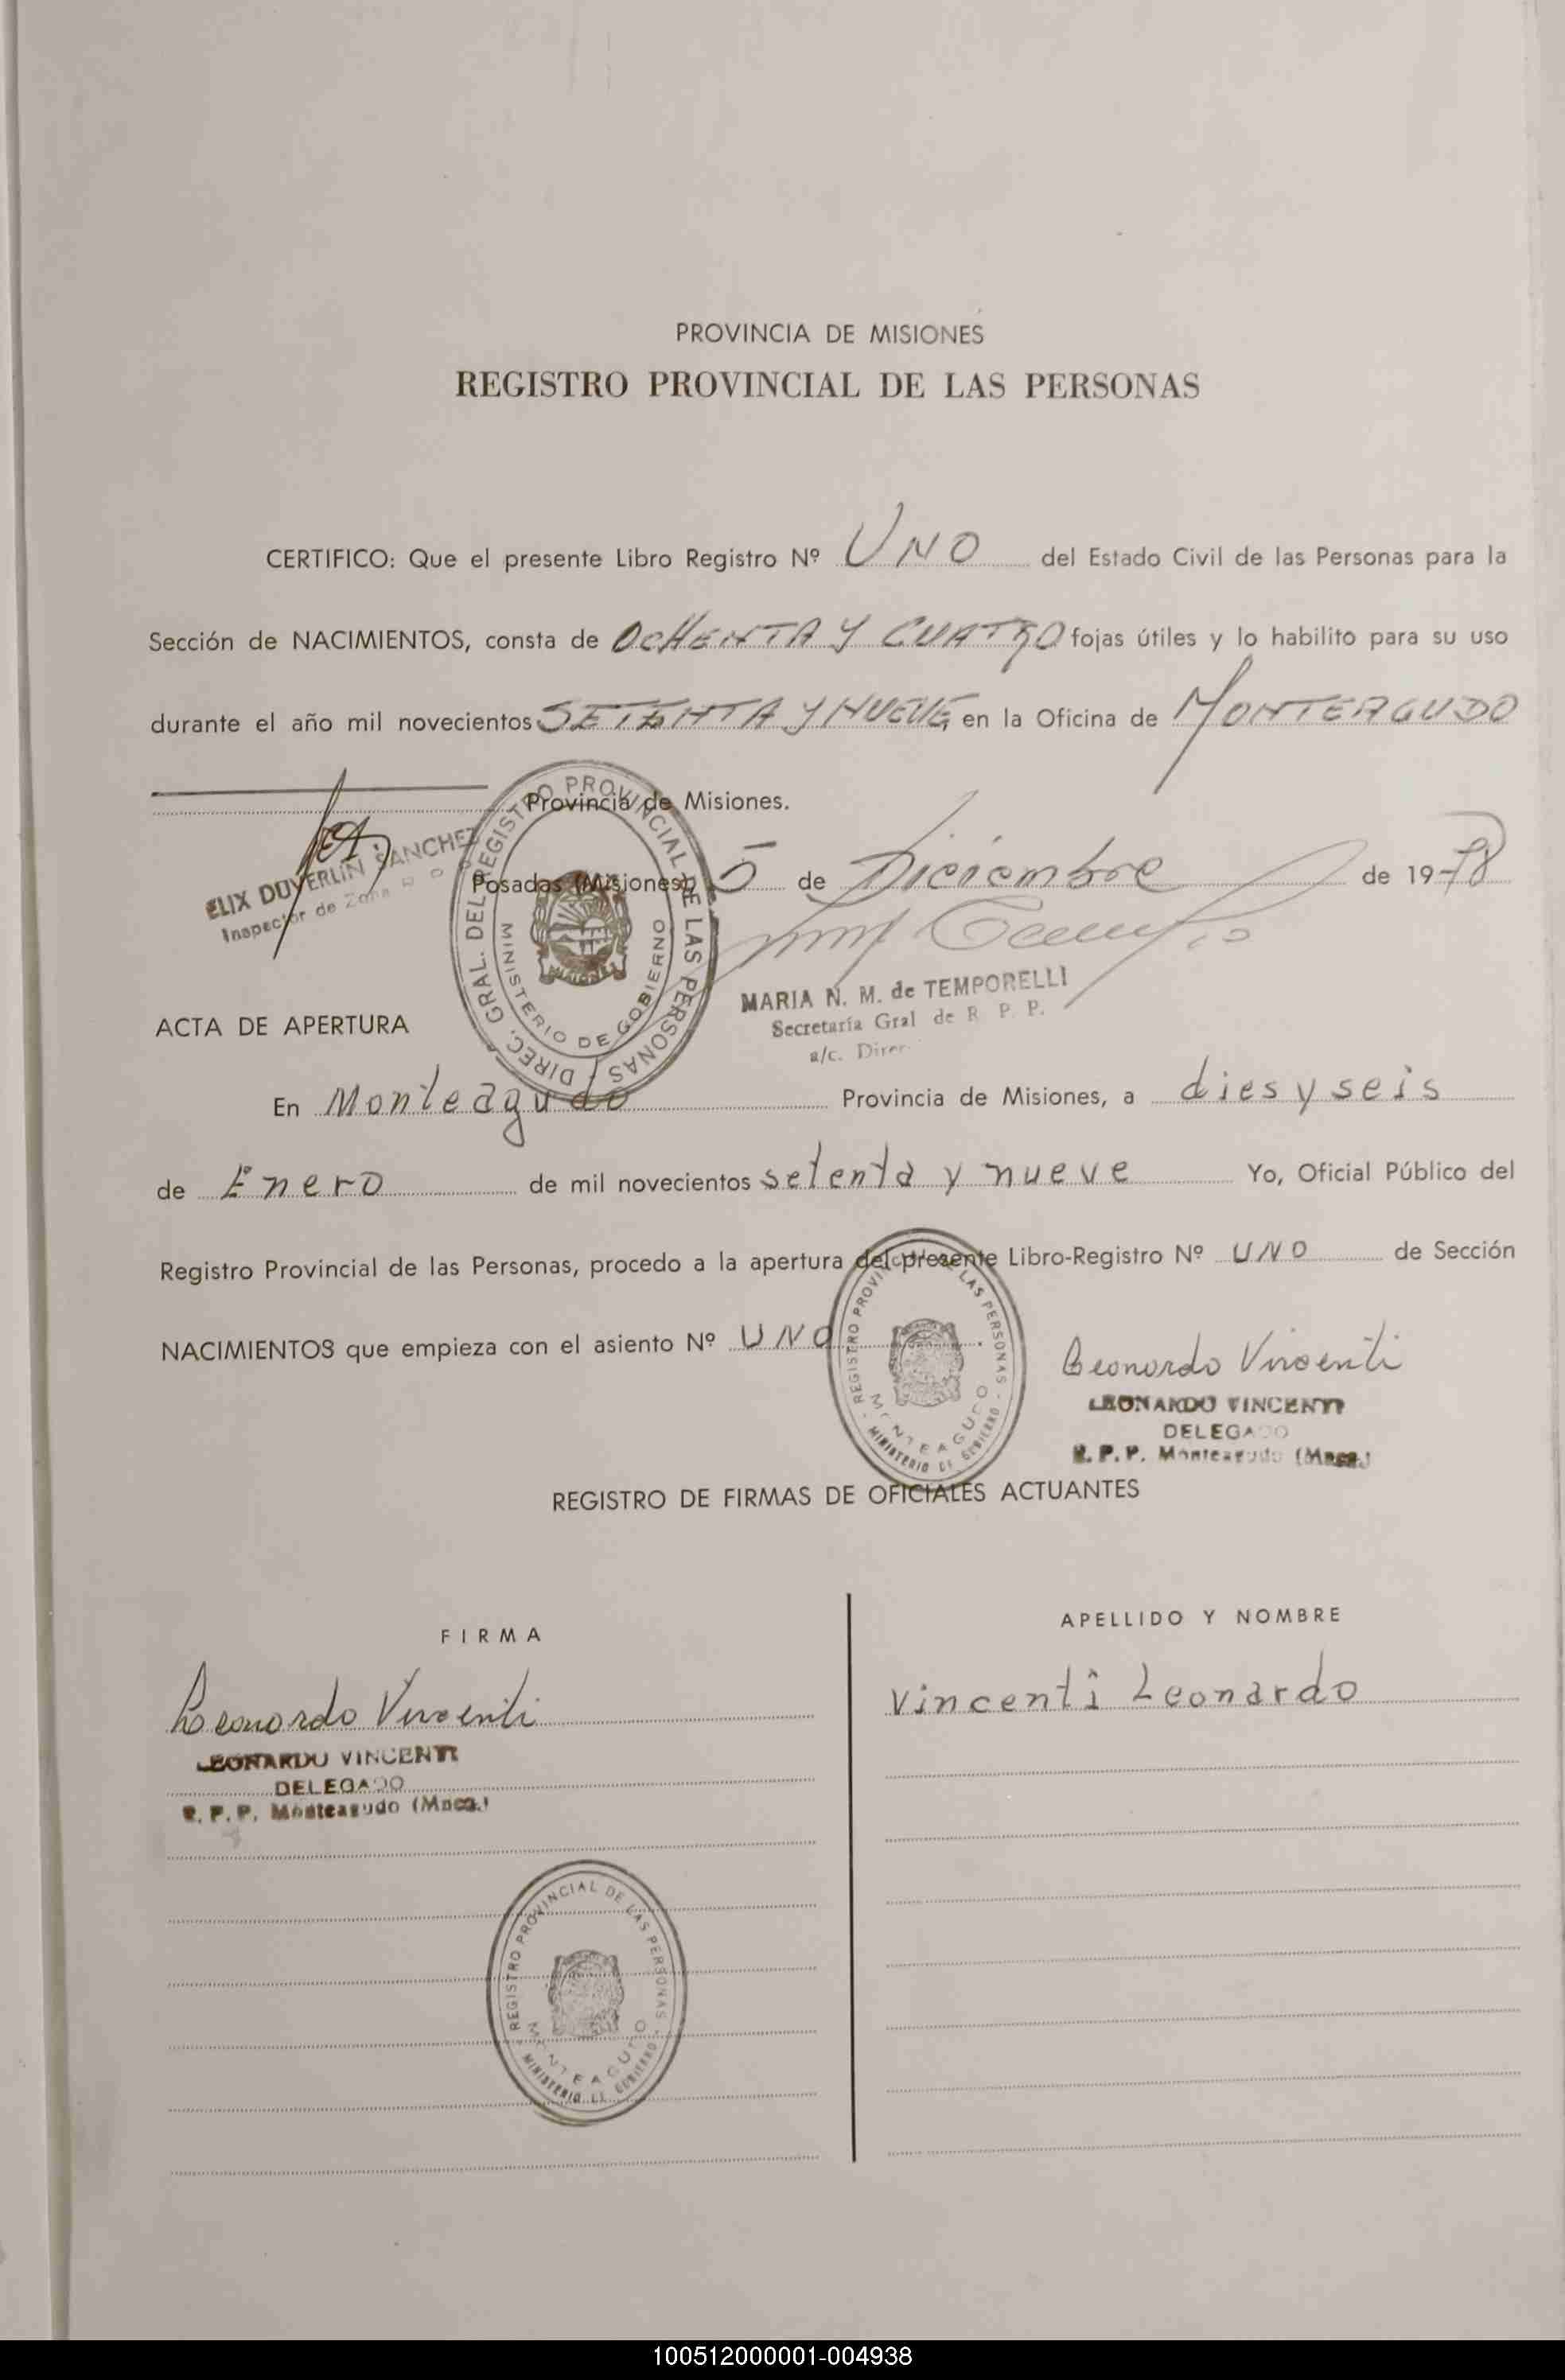 PROVINCIA DE MISIONES
REGISTRO PROVINCIAL DE LAS PERSONAS
CERTIFICO: Que el presente Libro Registro Nº UNO del Estado Civil de las Personas para la
Sección de NACIMIENTOS, consta de OCHENTA Y CUATRO fojas útiles y lo habilito para su uso
durante el año mil novecientos SETENTA Y NUEVE, en la Oficina de MONTEAGUDO
Provincia de Misiones.
ELIX DUVERLIN SANCHEZ
Inspector de Zona
DIREC. GRAL. DEL REGISTRO PROVINCIAL DE LAS PERSONAS
MINISTERIO DE GOBIERNO
MISIONES
Posadas (Misiones) 5 de Diciembre de 1978
MARIA N. M. de TEMPORELLI
Secretaría Gral de R. P. P.
a/c. Direc.
ACTA DE APERTURA
En Monteagudo Provincia de Misiones, a dies y seis
de Enero de mil novecientos setenta y nueve Yo, Oficial Público del
Registro Provincial de las Personas, procedo a la apertura del presente Libro-Registro Nº UNO de Sección
NACIMIENTOS que empieza con el asiento Nº UNO.
REGISTRO PROVINCIAL DE LAS PERSONAS - MINISTERIO DE GOBIERNO -
MONTEAGUDO
Leonardo Vincenti
LEONARDO VINCENTI
DELEGADO
R. P. P. Monteagudo (Mnes.)
REGISTRO DE FIRMAS DE OFICIALES ACTUANTES
FIRMA
APELLIDO Y NOMBRE
Leonardo Vincenti
Vincenti Leonardo
LEONARDO VINCENTI
DELEGADO
R. P. P. Monteagudo (Mnes.)
REGISTRO PROVINCIAL DE LAS PERSONAS - MINISTERIO DE GOBIERNO
MONTEAGUDO
100512000001-004938